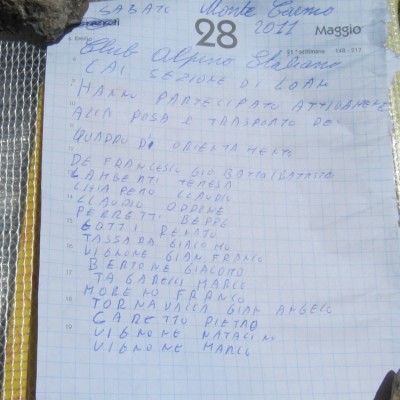 SABATO Monte Carmo
28 2011 Maggio
21ª settimana 148-217
Club Alpino Italiano
CAI SEZIONE DI LOANO
HANNO PARTECIPATO ATTIVAMENTE
ALLA POSA E TRASPORTO DEL
QUADRO DI ORIENTAMENTO
DE FRANCESCO GIO BATTA/BATTISTA
LAMBERTI TERESA
CLAUDIO
CLAUDIO ODDONE
PERRETTI BEPPE
GOTTI RENATO
TASSARA GIACOMO
VIGNONE GIAN FRANCO
BERTONE GIACOMO
TAGARELLI MARCO
MORENO FRANCO
TORNAVACCA GIAN ANGELO
CARETTO PIETRO
VIGNONE NATALINO
VIGNONE MARCO